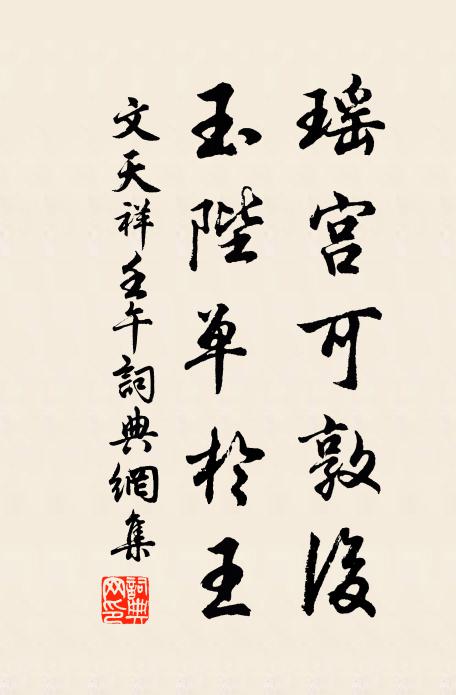 瑶宫可敦后
玉陛单于王
文天祥壬午詞典網集
詞典网印